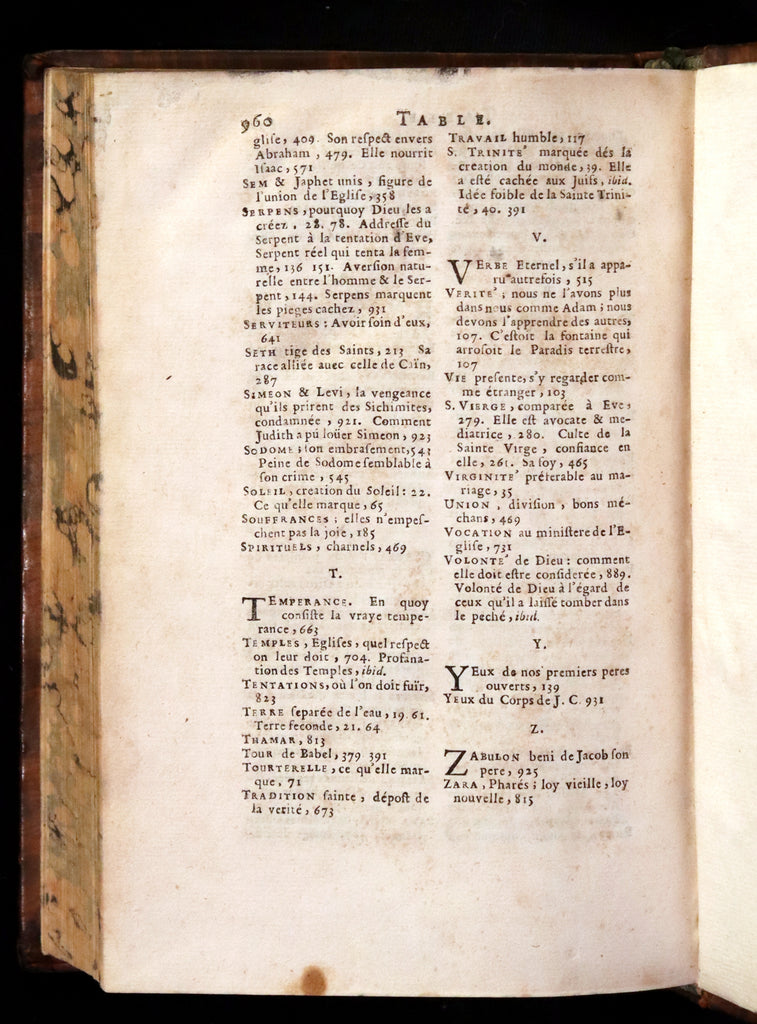 960 TABLE.
glise, 409. Son respect envers
Abraham, 479. Elle nourrit
Isaac, 571
SEM & Japhet unis, figure de
l'union de l'Eglise, 358
SERPENS, pourquoy Dieu les a
créez. 28. 78. Addresse du
Serpent à la tentation d'Eve,
Serpent réel qui tenta la fem-
me, 136 151. Aversion natu-
relle entre l'homme & le Ser-
pent, 144. Serpens marquent
les pieges cachez, 931
SERVITEURS: Avoir soin d'eux,
641
SETH tige des Saints, 213 Sa
race alliée avec celle de Caïn,
287
SIMEON & Levi, la vengeance
qu'ils prirent des Sichimites,
condamnée, 921. Comment
Judith a pû loüer Simeon, 923
SODOME; son embrasement, 543
Peine de Sodome semblable à
son crime, 545
SOLEIL, creation du Soleil: 22.
Ce qu'elle marque, 65
SOUFFRANCES; elles n'empes-
chent pas la joie, 185
SPIRITUELS, charnels, 469
T.
TEMPERANCE. En quoy
consiste la vraye tempe-
rance, 663
TEMPLES, Eglises, quel respect
on leur doit, 704. Profana-
tion des Temples, ibid.
TENTATIONS, où l'on doit fuïr,
823
TERRE separée de l'eau, 19. 61.
Terre feconde, 21. 64
THAMAR, 813
TOUR de Babel, 379 391
TOURTERELLE, ce qu'elle mar-
que, 71
TRADITION sainte, dépost de
la verité, 673
TRAVAIL humble, 117
S. TRINITE' marquée dés la
creation du monde, 39. Elle
a esté cachée aux Juifs, ibid.
Idée foible de la Sainte Trini-
té, 40. 391
V.
VERBE Eternel, s'il a appa-
ru autrefois, 515
VERITE'; nous ne l'avons plus
dans nous comme Adam; nous
devons l'apprendre des autres,
107. C'estoit la fontaine qui
arrosoit le Paradis terrestre,
107
VIE presente, s'y regarder com-
me étranger, 103
S. VIERGE, comparée à Eve,
279. Elle est avocate & me-
diatrice, 280. Culte de la
Sainte Virge, confiance en
elle, 261. Sa foy, 465
VIRGINITE' préferable au ma-
riage, 35
UNION, division, bons mé-
chans, 469
VOCATION au ministere de l'E-
glise, 731
VOLONTE' de Dieu: comment
elle doit estre considerée, 889.
Volonté de Dieu à l'égard de
ceux qu'il a laissé tomber dans
le peché, ibid.
Y.
YEux de nos premiers peres
ouverts, 139
YEUX du Corps de J. C. 931
Z.
ZABULON beni de Jacob son
pere, 925
ZARA, Pharés; loy vieille, loy
nouvelle, 815